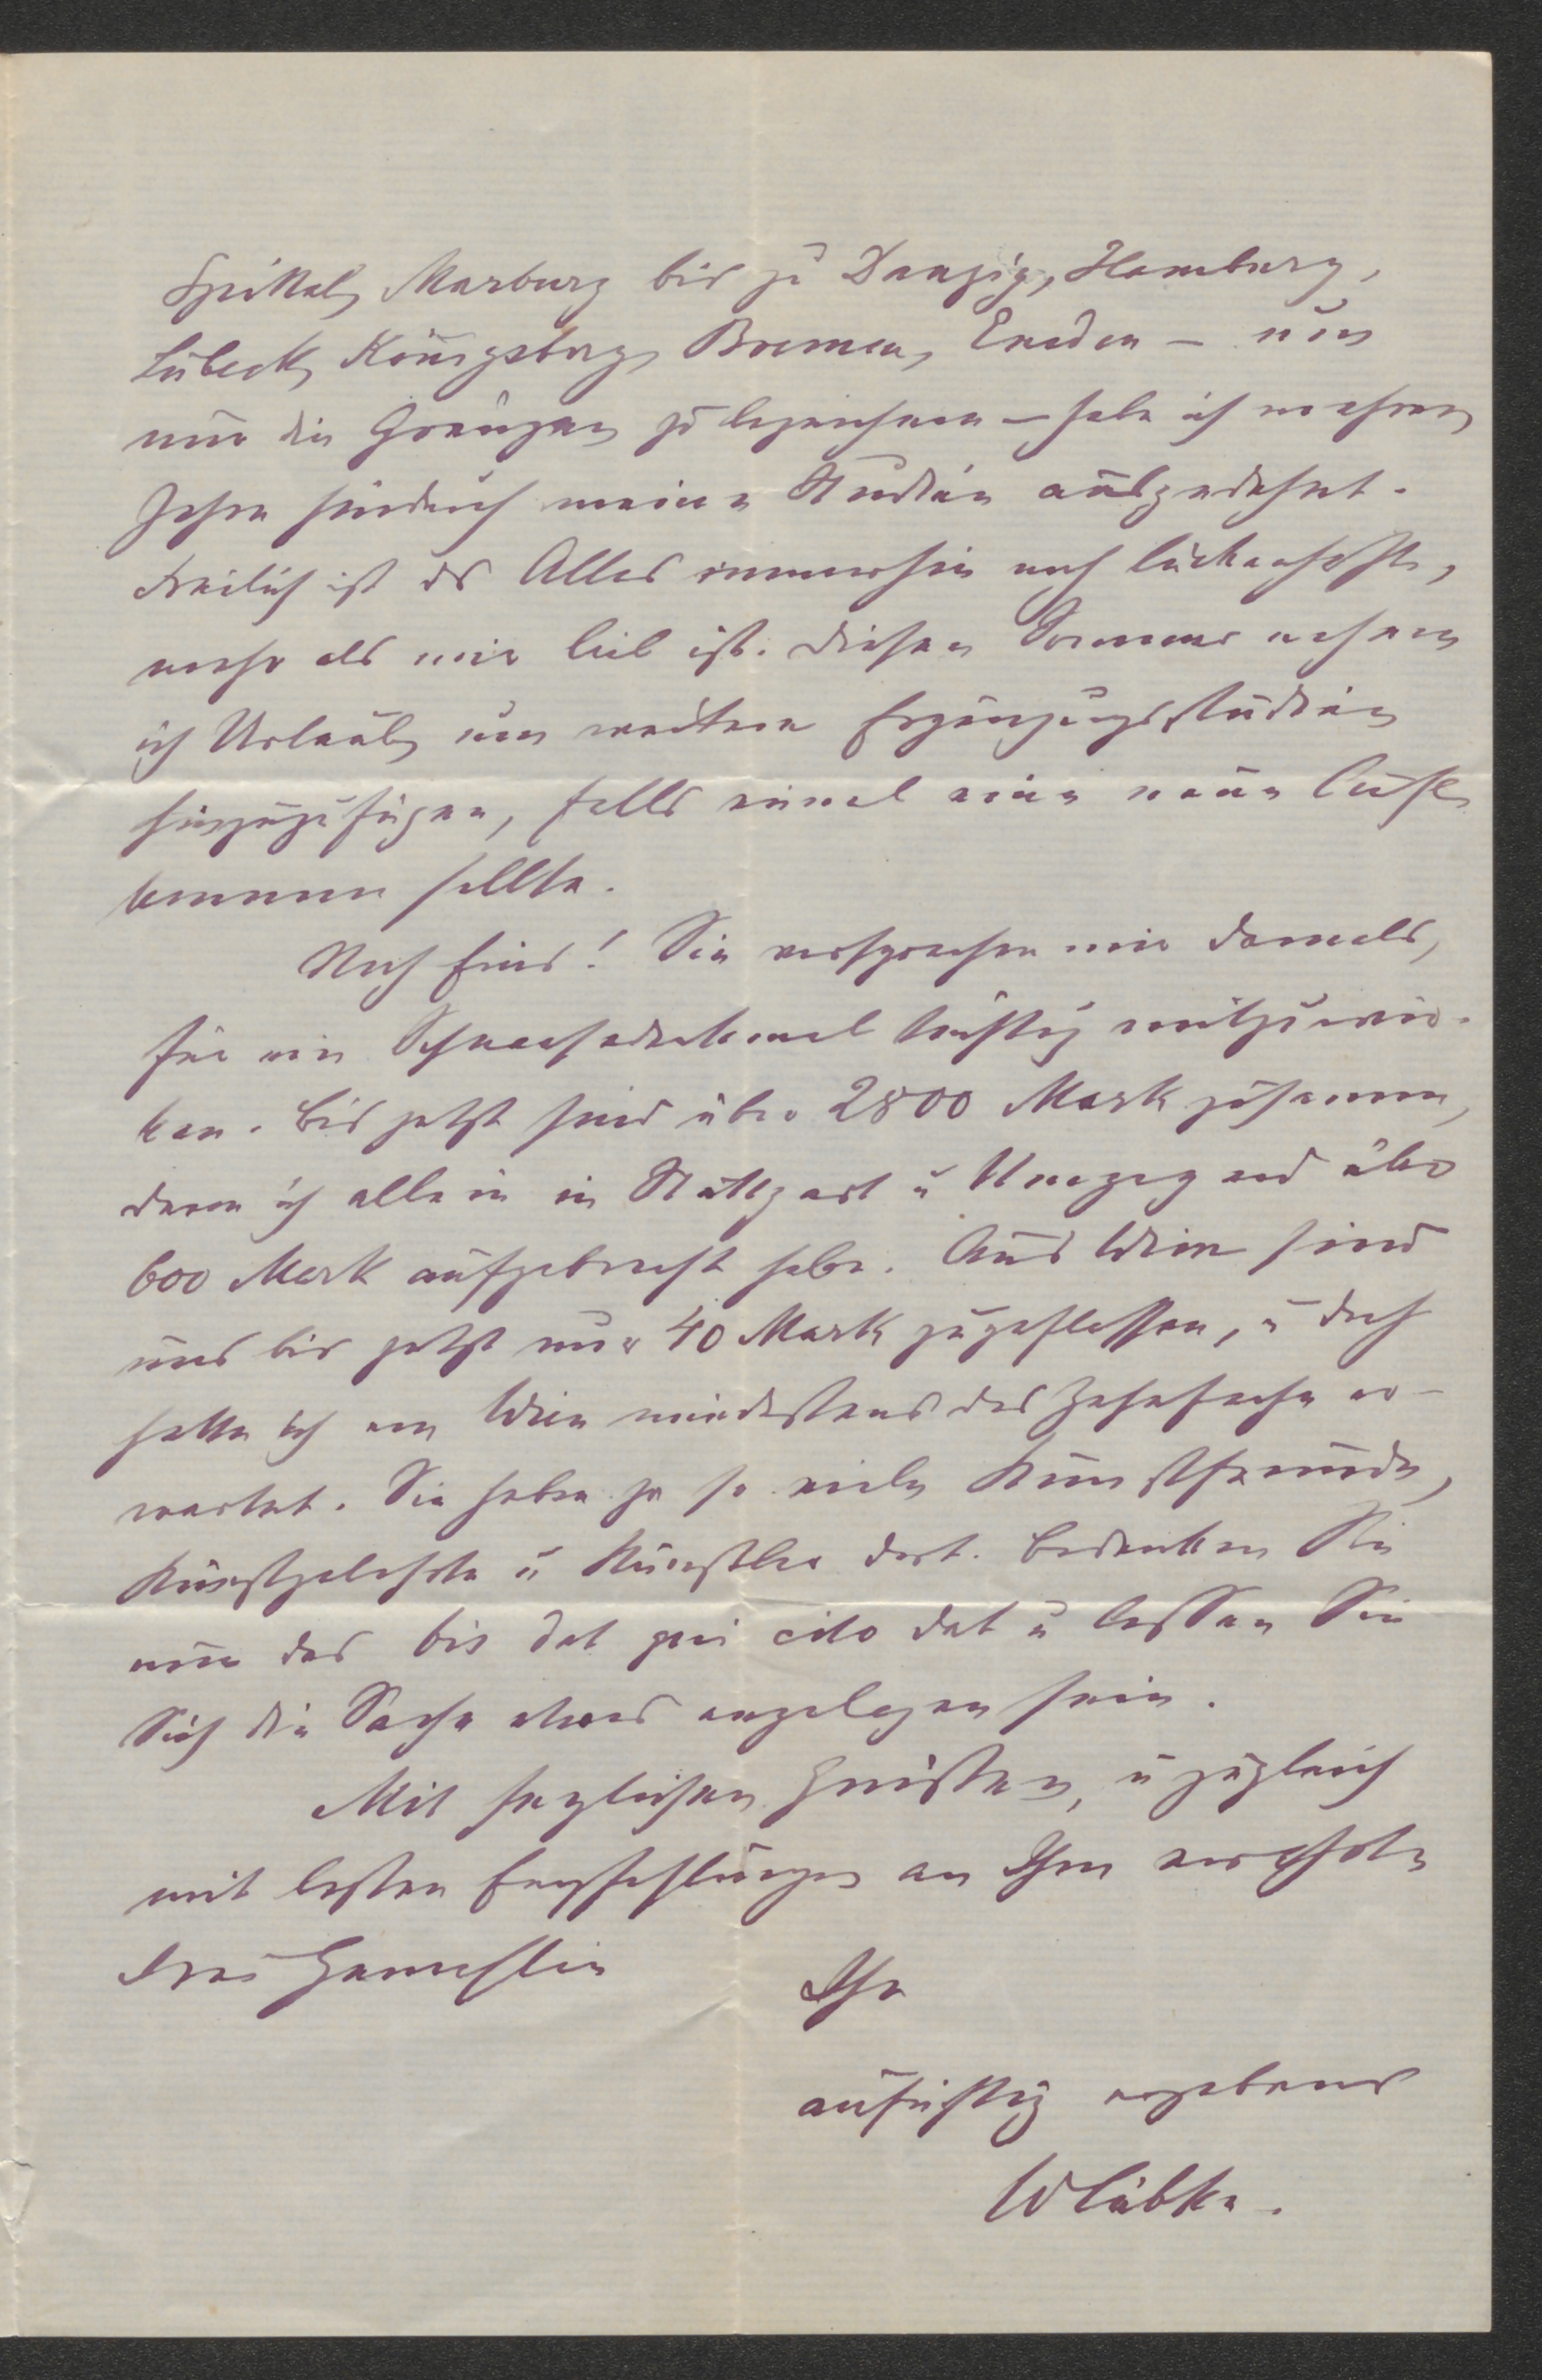 Spittal, Marburg bis zu Danzig, Hamburg,
Lübeck, Königsberg, Bremen, Emden – um
nur die Gränzen zu bezeichnen – habe ich mehrere
Jahre hindurch meine Studien ausgedehnt.
Freilich ist das Alles immerhin noch lückenhaft,
mehr als mir lieb ist. Diesen Sommer nehme
ich Urlaub, um weitere Ergänzungsstudien
hinzuzufügen, falls einmal eine neue Aufl.
kommen sollte.
Noch Eins! Sie versprachen mir damals,
für ein Schnaasedenkmal kräftig mitzuwir-
ken. Bis jetzt sind über 2800 Mark zusammen,
deren ich allein in Stuttgart u Umgegend über
600 Mark aufgebracht habe. Aus Wien sind
uns bis jetzt nur 40 Mark zugeflossen, u doch
hatte ich von Wien mindestens das Zehnfache er-
wartet. Sie haben ja so viele Kunstfreunde,
Kunstgelehrte u Künstler dort. Bedenken Sie
nun das bis dat qui cito dat u lassen Sie
Sich die Sache etwas angelegen sein.
Mit herzlichen Grüssen, u zugleich
mit besten Empfehlungen an Ihre verehrte
Frau Gemahlin
Ihr
aufrichtig ergebener
WLübke.